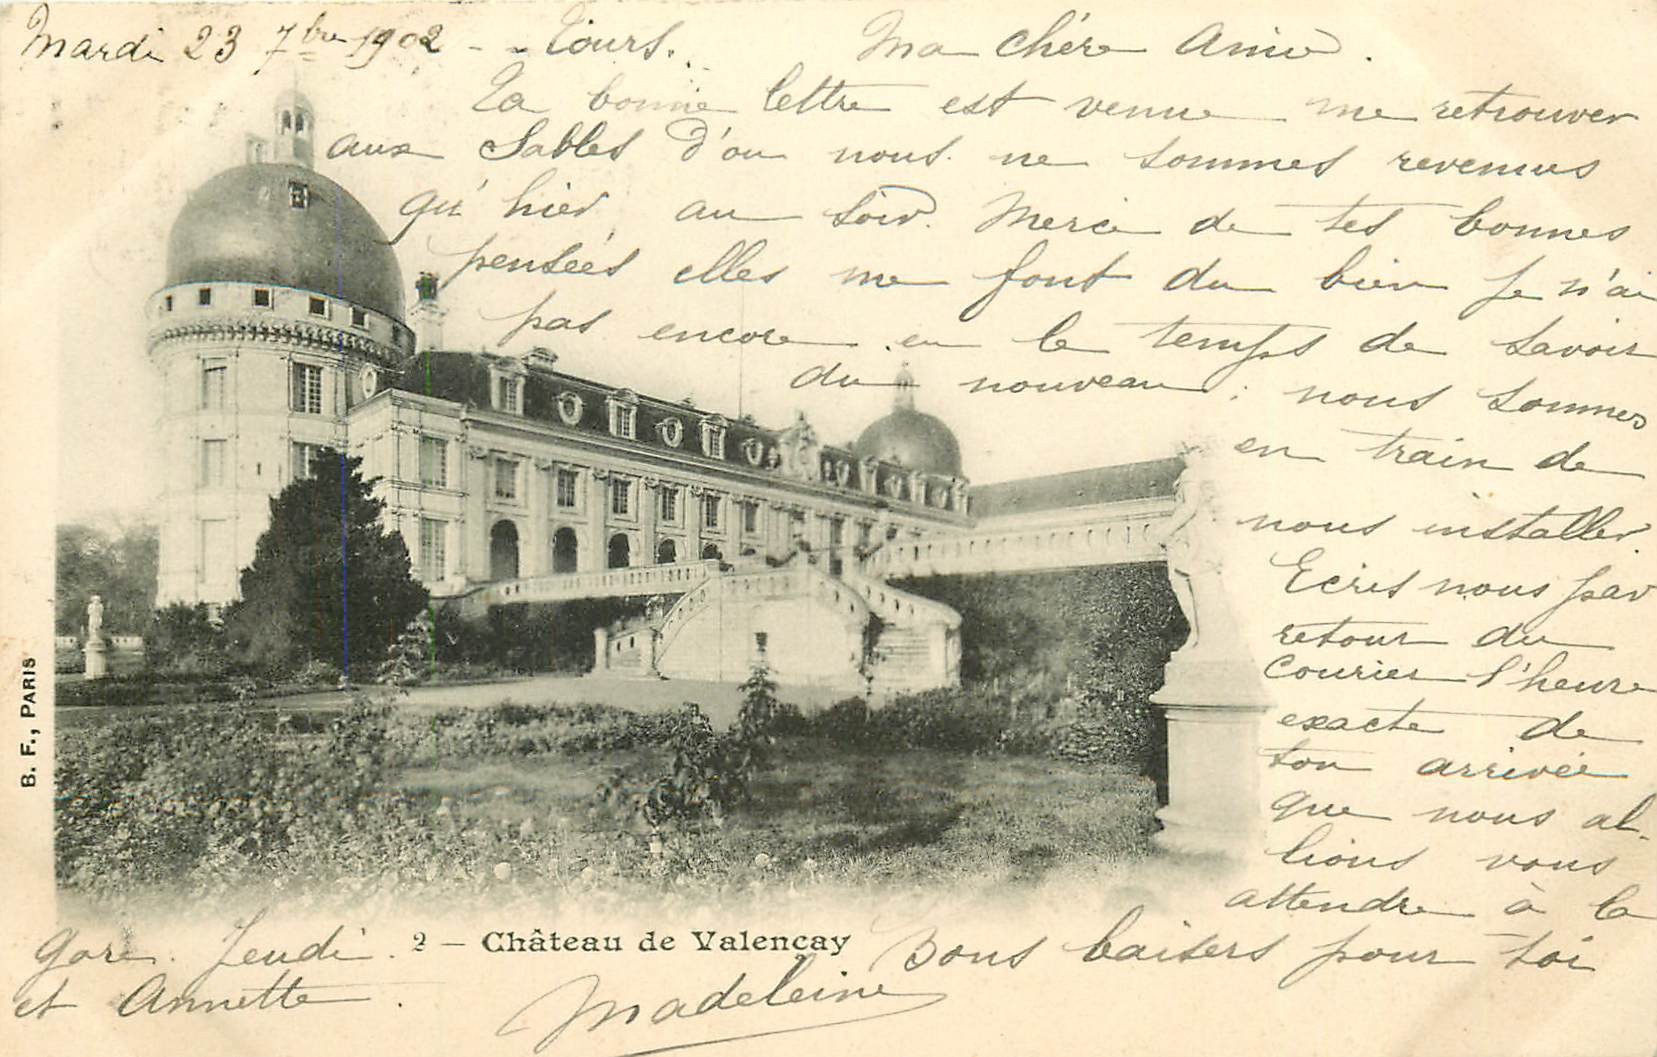 Mardi 23 7bre 1902 - Tours.
Ma chère Amie.
Ta bonne lettre est venue me retrouver
aux Sables d'ou nous ne sommes revenus
qu'hier au soir. Merci de tes bonnes
pensées elles me font du bien je n'ai
pas encore eu le temps de savoir
du nouveau ; nous sommes
en train de
nous installer.
Ecris nous par
retour du
courier l'heure
exacte de
ton arrivée
que nous al-
lions vous
attendre à la
gare. Jeudi.
2 — Château de Valençay
Bons baisers pour toi
et Annette.
Madeleine
B. F., PARIS